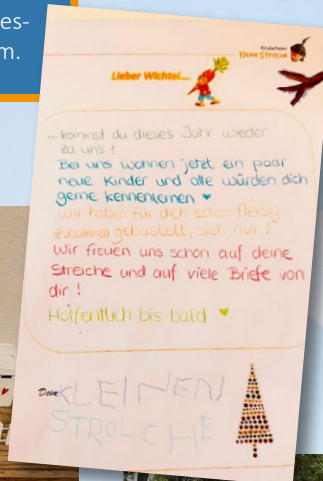 es-
m.
Kinderheim
Kleine Strolche
Lieber Wichtel....
... kommst du dieses Jahr wieder
zu uns?
Bei uns wohnen jetzt ein paar
neue Kinder und alle würden dich
gerne kennenlernen ♥
Wir haben für dich schon fleißig
zusammen gebastelt, sieh nur!
Wir freuen uns schon auf deine
Streiche und auf viele Briefe von
dir!
Hoffentlich bis bald ♥
Deine KLEINEN
STROLCHE